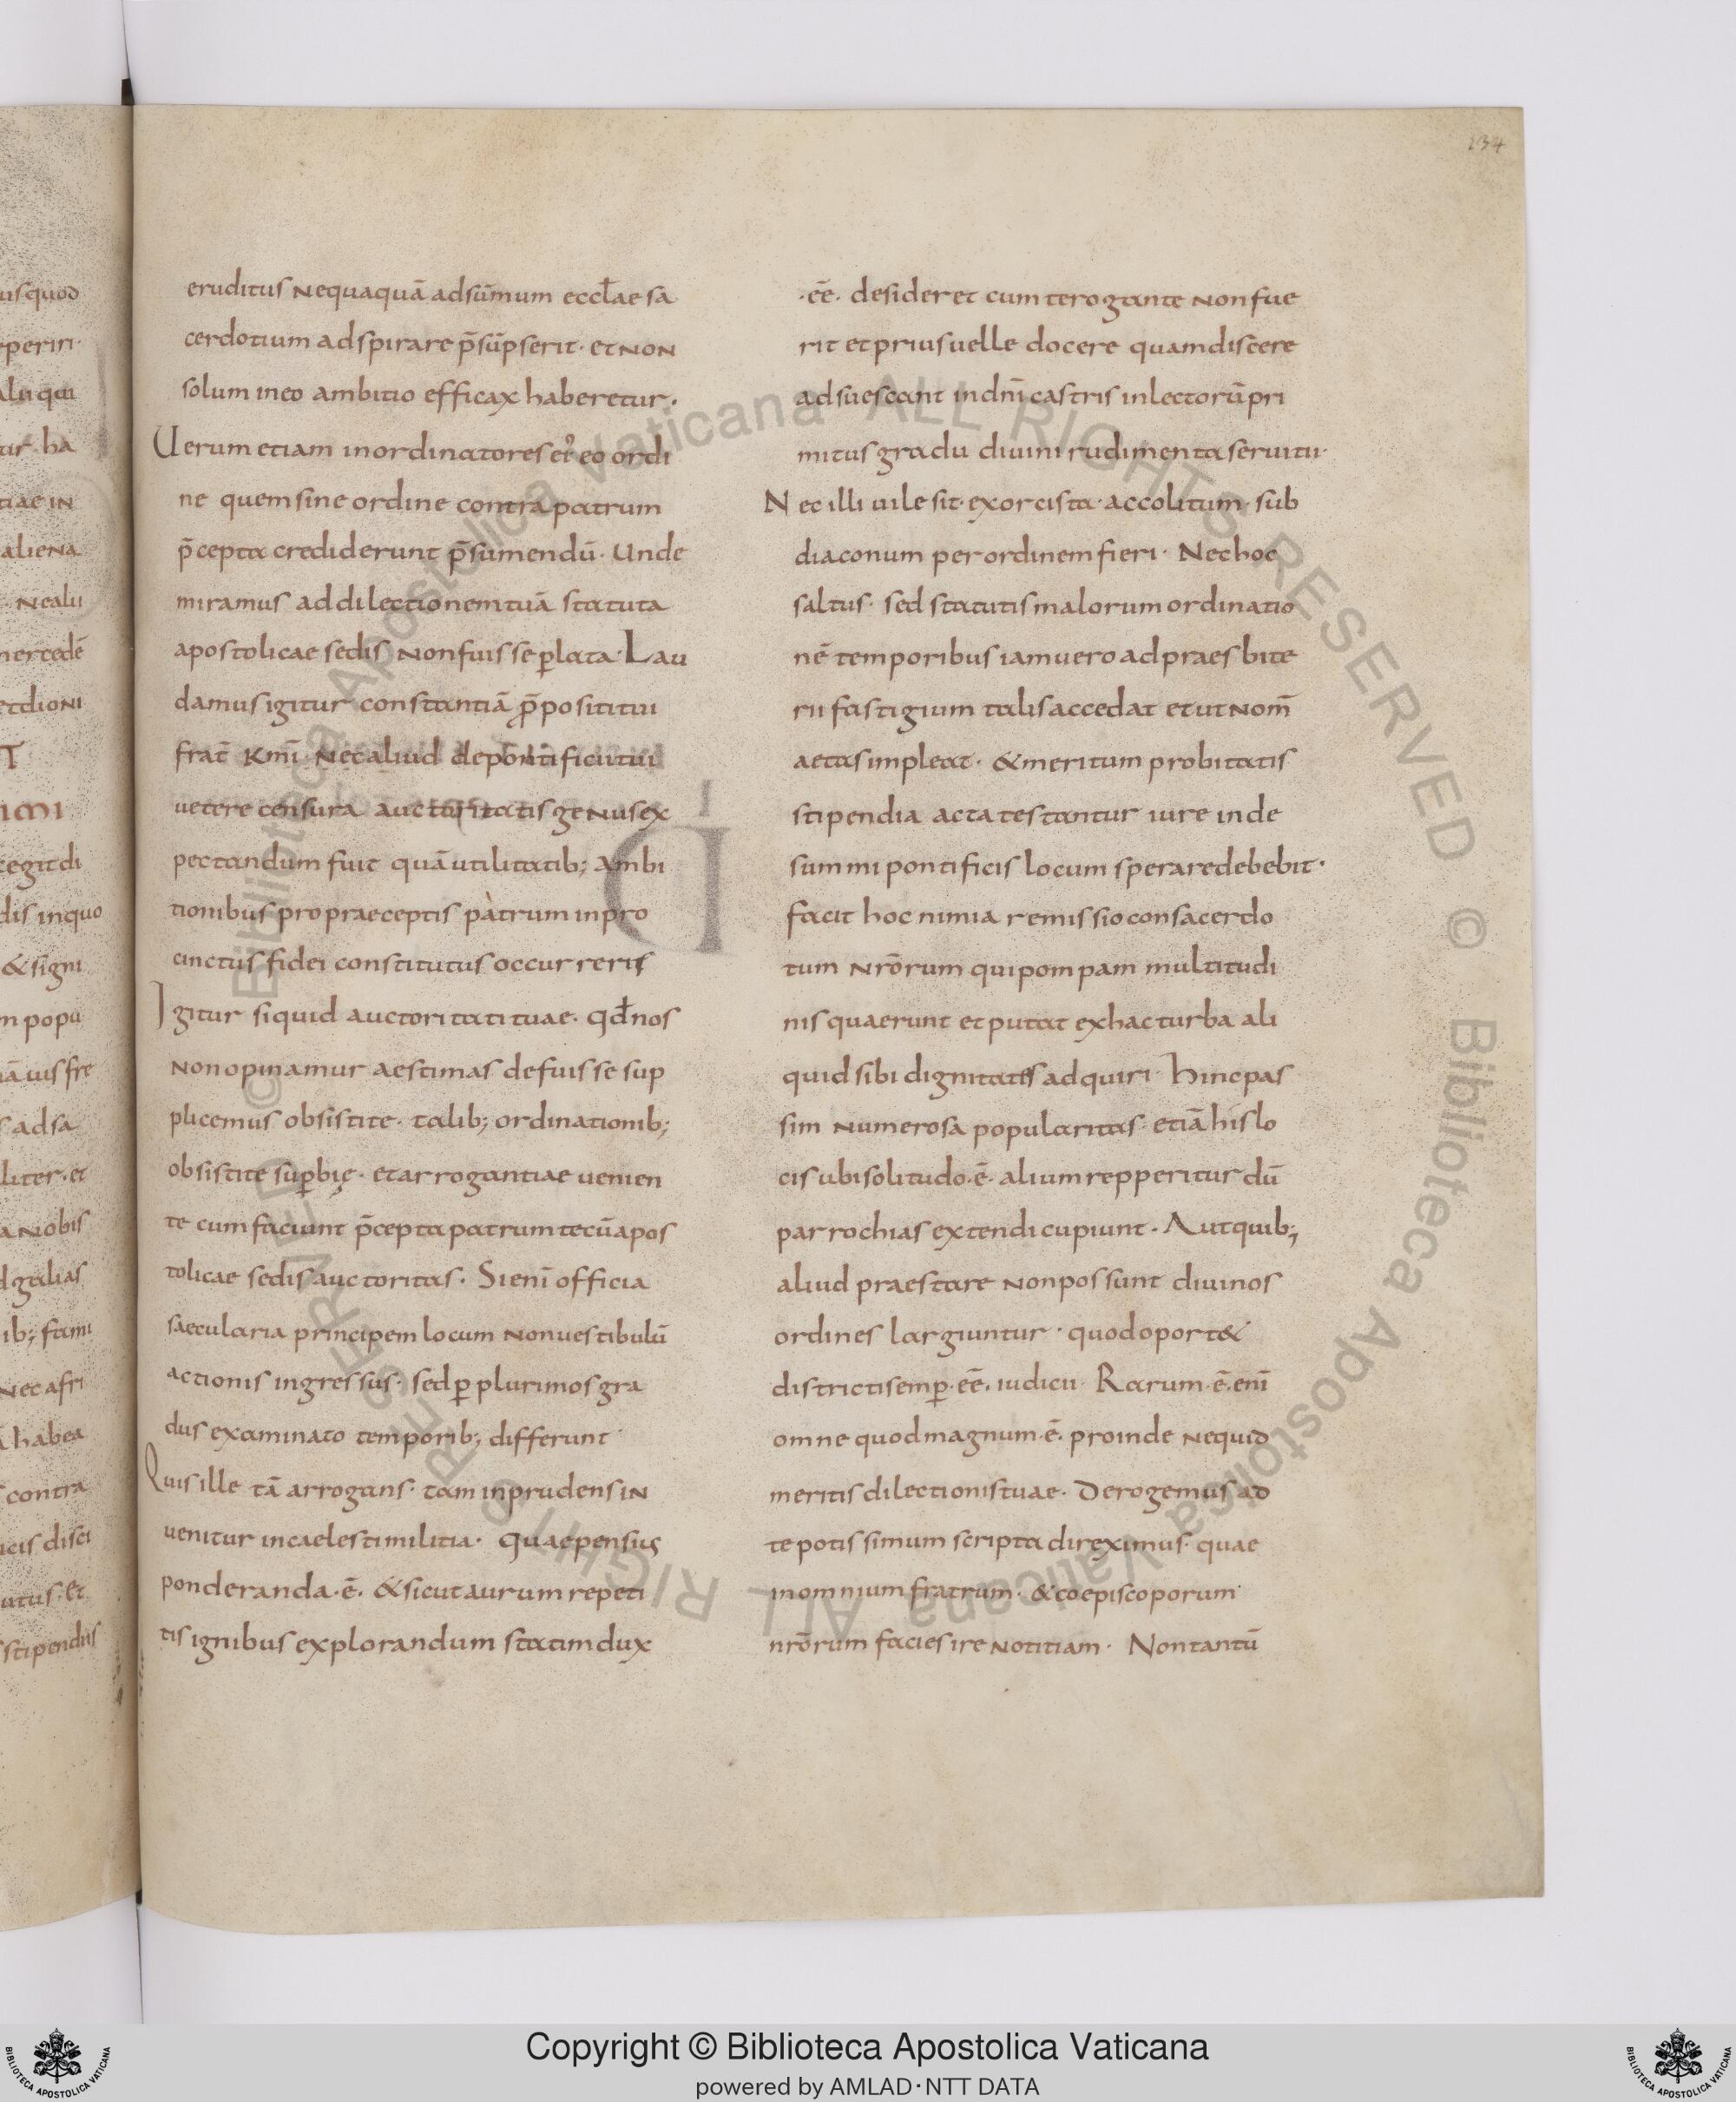 134
eruditus nequaquā adsūmum eccłae sa
cerdotium adspirare p̄sūpserit· et non
solum ineo ambitio efficax haberetur·
Uerum etiam inordinatores ei' eo ordi
ne quem sine ordine contra patrum
p̄cepta crediderunt p̄sumendū· Unde
miramus addilectionem tuā statuta
apostolicae sedis non fuisse perlata· Lau
damus igitur constantiā p̄positi tui
frat̄ km̄i· Nec aliud de pontificii tui
uetere censura auctoritatis genus ex
pectandum fuit quā utilitatib; ambi
tionibus pro praeceptis patrum inpro
cinctus fidei constitutus occurreris
Igitur siquid auctoritati tuae· qđ nos
non opinamur aestimas defuisse sup
plicemus obsistite· talib; ordinationib;
obsistite superbię· et arrogantiae uenien
te cum faciunt p̄cepta patrum tecū apos
tolicae sedis auctoritas· Si enī officia
saecularia principem locum non uestibulū
actionis ingressus· sed per plurimos gra
dus examinato temporib; differunt
Quis ille tā arrogans· tam inprudens in
uenitur incaelesti militia· quae pensius
ponderanda·ē· & sicut aurum repeti
tis ignibus explorandum statim dux
·eē· desideret cum tero gante non fue
rit et prius uelle docere quam discere
adsuescant in dn̄i castris inlectorū pri
mitus gradu diuini rudimenta seruitii·
Nec illi uile sit· exorcista· accolitum· sub
diaconum per ordinem fieri· Nec hoc
saltus· sed statutis malorum ordinatio
nē temporibus iam uero ad praesbite
rii fastigium talis accedat et ut nom̄
aetas impleat· & meritum probitatis
stipendia acta testantur iure inde
summi pontificis locum sperare debebit·
facit hoc nimia remissio consacerdo
tum nrōrum qui pompam multitudi
nis quaerunt et putat ex hac turba ali
quid sibi dignitatis adquiri· hinc pas
sim numerosa popularitas· etiā his lo
cis ubi solitudo·ē· alium repperitur dū
parrochias extendi cupiunt· Aut quib;
aliud praestare non possunt diuinos
ordines largiuntur· quod oport&
districti semper·eē· iudicii· Rarum·ē· enī
omne quod magnum·ē· proinde nequid
meritis dilectionis tuae· Derogemus ad
te potissimum scripta direximus· quae
inomnium fratrum· & coepiscoporum
nrōrum facies ire notitiam· Non tantū
Copyright © Biblioteca Apostolica Vaticana
powered by AMLAD·NTT DATA